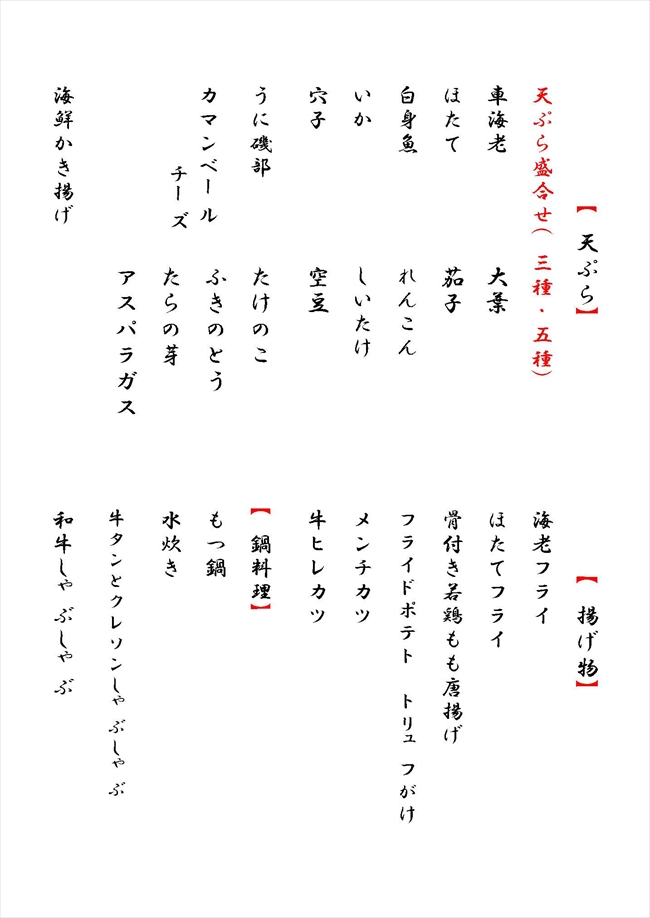 【天ぷら】
天ぷら盛合せ(三種・五種)
車海老
大葉
ほたて
茄子
白身魚
れんこん
いか
しいたけ
穴子
空豆
うに磯部
たけのこ
カマンベール
チーズ
ふきのとう
たらの芽
アスパラガス
海鮮かき揚げ
【揚げ物】
海老フライ
ほたてフライ
骨付き若鶏もも唐揚げ
フライドポテト トリュフがけ
メンチカツ
牛ヒレカツ
【鍋料理】
もつ鍋
水炊き
牛タンとクレソンしゃぶしゃぶ
和牛しゃぶしゃぶ